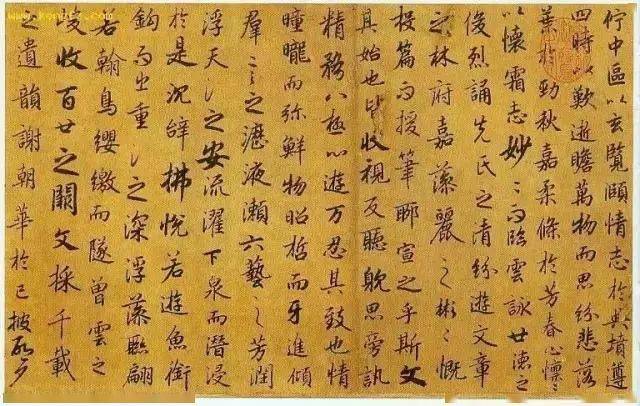 佇中區以玄覽頤情志於典墳遵
四時以歎逝瞻萬物而思紛悲落
葉於勁秋嘉柔條於芳春心懍〻
以懷霜志妙〻而臨雲詠世德之
俊烈誦先氏之清紛遊文章
之林府嘉藻麗之彬〻慨
投篇而援筆聊宣之乎斯文
其始也皆收視反聽耽思旁訊
精務八極心遊万忍其致也情
曈曨而弥鮮物昭晢而牙進傾
羣言之瀝液漱六藝之芳潤
浮天淵之安流濯下泉而潛浸
於是沉辞拂悦若遊魚銜
鈎而出重淵之深浮藻聯翩
若翰鳥纓繳而墜曾雲之
峻收百世之闕文採千載
之遺韻謝朝華於已披啓夕